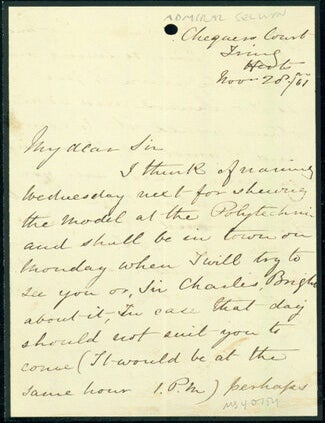 ADMIRAL SELWYN
Chequers Court
Tring
Herts
Nov 28th/61
My dear Sir
I think of naming
Wednesday next for shewing
the model at the Polytechnic
and shall be in town on
Monday when I will try to
see you or, Sir Charles, Bright
about it, In case that day
should not suit you to
come (It would be at the
same hour 1.P.M) perhaps